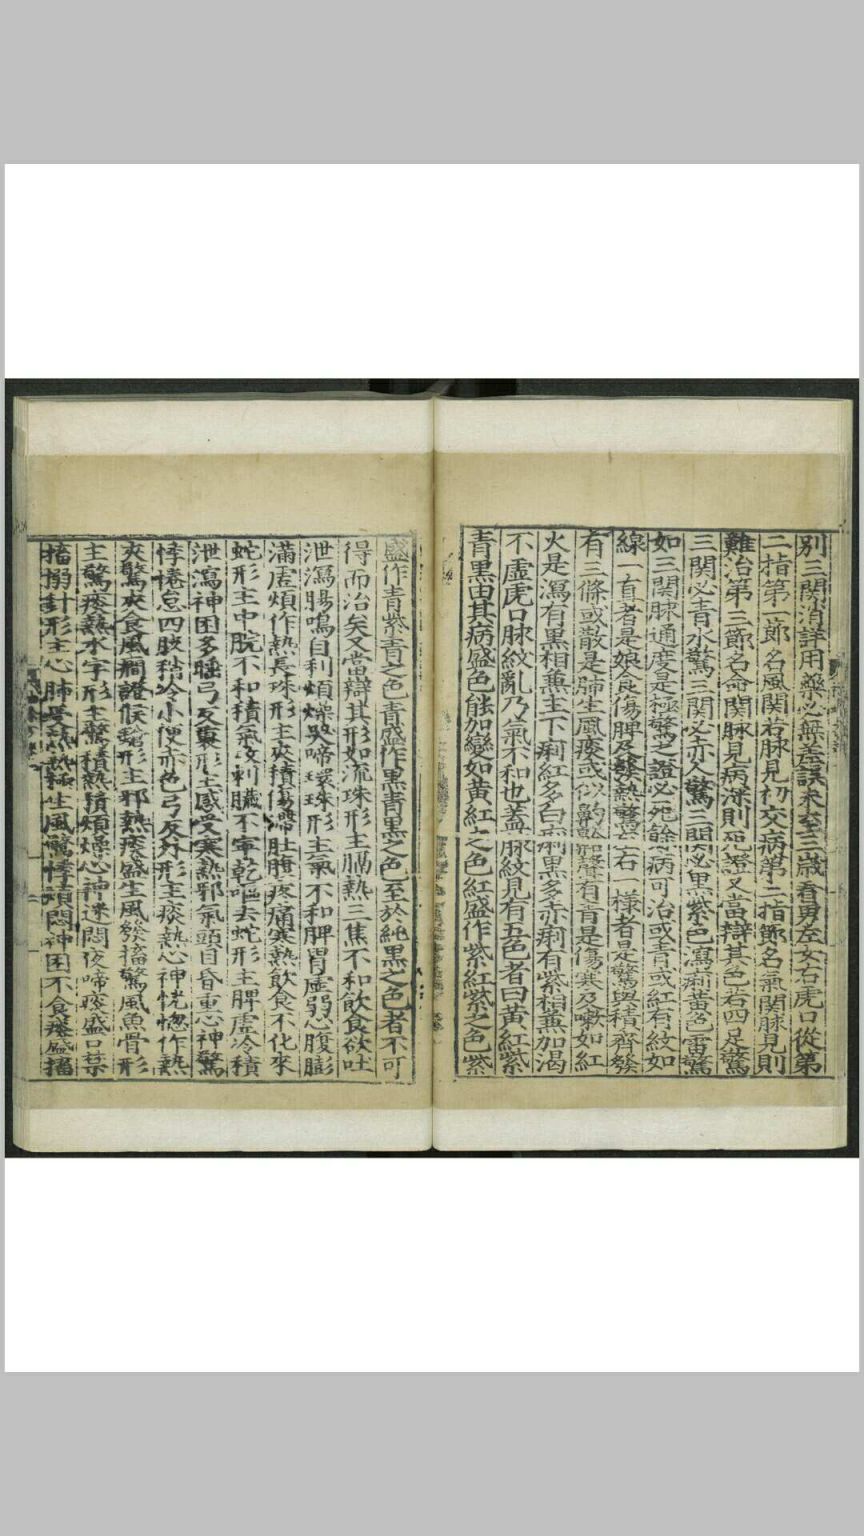 別三關消詳用藥必無差誤未至三歲看男左女右虎口從第
二指第一節名風關若脉見初交病第二指節名氣關脉見則
難治第三節名命關脉見病深則死證又當辯其色若四足驚
三関必青水驚三関必赤人驚三関必黑紫色瀉痢黄色雷驚
如三関脉通度是極驚之證必死餘病可治或青或紅有紋如
線一直者是娘食傷脾及發熱驚左右一樣者是驚與積齊發
有三條或散是肺生風痰或似齁𪖙聲有青是傷寒及嗽如紅
火是瀉有黑相兼主下痢紅多白痢黑多赤痢有紫相兼加渴
不虛虎口脉紋亂乃氣不和也蓋脉紋見有五色者曰黄紅紫
青黒由其病盛色能加變如黄紅之色紅盛作紫紅紫之色紫
盛作青紫青之色青盛作黒青黒之色至於純黒之色者不可
得而治矣又當辯其形如流珠形主膈熱三焦不和飲食欲吐
泄瀉腸鳴自利煩燥啼環珠形主氣不和脾胃虛弱心腹膨
滿虛煩作熱長珠形主夾積傷滯肚腹疼痛寒熱飲食不化來
蛇形主中脘不和積氣攻刺臟不寧乾嘔去蛇形主脾虛冷積
泄瀉神困多睡弓反裏形主感受寒熱邪氣頭目昏重心神驚
悸倦怠四肢稍冷小便赤色弓反外形主痰熱心神恍惚作熱
夾驚夾食風癇證候鎗形主邪熱痰盛生風發搐驚風魚骨形
主驚痰熱水字形主驚積熱積煩燥心神迷悶夜啼痰盛口禁
搐搦針形主心肺受熱熱極生風驚悸頑悶神困不食痰盛搐